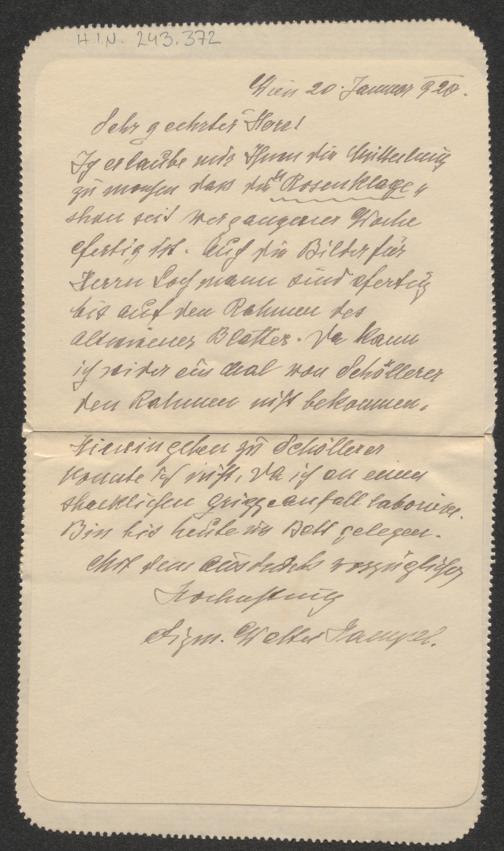 H.I.N. 243.372
Wien 20. Januar 920.
Sehr geehrter Herr!
Ich erlaube mir Ihnen die Mitteilung
zu machen dass die "Rosenklage"
shon seit vergangener Woche
fertig ist. Auf die Bilder für
Herrn Lochmann sind fertig
bis auf den Rahmen des
altwiener Blattes. Da kann
ich wider ein Mal von Schöllerer
den Rahmen nicht bekommen.
Hineingehen zu Schöllerer
konnte ich nicht, da ich an einem
shrecklichen Grippeanfall laborire.
Bin bis heute im Bett gelegen.
Mit dem Ausdruck vorzüglicher
Hochachtung
Sigm. Walter Hampel.